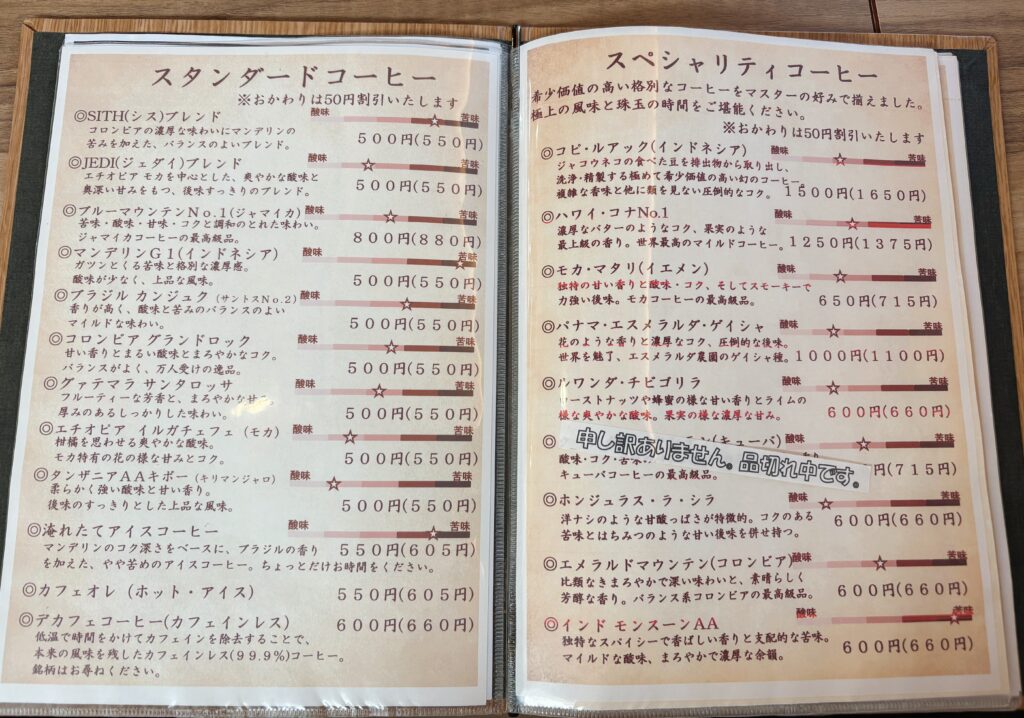 スタンダードコーヒー
※おかわりは50円割引いたします
◎SITH(シス)ブレンド
酸味 苦味
コロンビアの濃厚な味わいにマンデリンの
苦みを加えた、バランスのよいブレンド。
500円(550円)
◎JEDI(ジェダイ)ブレンド
酸味 苦味
エチオピア モカを中心とした、爽やかな酸味と
奥深い甘みをもつ、後味すっきりのブレンド。
500円(550円)
◎ブルーマウンテンNo.1(ジャマイカ)
酸味 苦味
苦味・酸味・甘味・コクと調和のとれた味わい。
ジャマイカコーヒーの最高級品。
800円(880円)
◎マンデリンG1(インドネシア)
酸味 苦味
ガツンとくる苦味と格別な濃厚感。
酸味が少なく、上品な風味。
500円(550円)
◎ブラジル カンジュク (サントスNo.2)
酸味 苦味
香りが高く、酸味と苦みのバランスのよい
マイルドな味わい。
500円(550円)
◎コロンビア グランドロック
酸味 苦味
甘い香りとまるい酸味とまろやかなコク。
バランスがよく、万人受けの逸品。
500円(550円)
◎グァテマラ サンタロッサ
酸味 苦味
フルーティーな芳香と、まろやかな甘み。
厚みのあるしっかりした味わい。
500円(550円)
◎エチオピア イルガチェフェ (モカ)
酸味 苦味
柑橘を思わせる爽やかな酸味。
モカ特有の花の様な甘みとコク。
500円(550円)
◎タンザニアAAキボー (キリマンジャロ)
酸味 苦味
柔らかく強い酸味と甘い香り。
後味のすっきりとした上品な風味。
500円(550円)
◎淹れたてアイスコーヒー
酸味 苦味
マンデリンのコク深さをベースに、ブラジルの香り
を加えた、やや苦めのアイスコーヒー。ちょっとだけお時間をください。
550円(605円)
◎カフェオレ (ホット・アイス)
550円(605円)
◎デカフェコーヒー(カフェインレス)
600円(660円)
低温で時間をかけてカフェインを除去することで、
本来の風味を残したカフェインレス(99.9%)コーヒー。
銘柄はお尋ねください。
スペシャリティコーヒー
希少価値の高い格別なコーヒーをマスターの好みで揃えました。
極上の風味と珠玉の時間をご堪能ください。
※おかわりは50円割引いたします
◎コピ・ルアック(インドネシア)
酸味 苦味
ジャコウネコの食べた豆を排出物から取り出し、
洗浄・精製する極めて希少価値の高い幻のコーヒー。
複雑な香味と他に類を見ない圧倒的なコク。
1500円(1650円)
◎ハワイ・コナNo.1
酸味 苦味
濃厚なバターのようなコク、果実のような
最上級の香り。世界最高のマイルドコーヒー。
1250円(1375円)
◎モカ・マタリ(イエメン)
酸味 苦味
独特の甘い香りと酸味・コク、そしてスモーキーで
力強い後味。モカコーヒーの最高級品。
650円(715円)
◎パナマ・エスメラルダ・ゲイシャ
酸味 苦味
花のような香りと濃厚なコク、圧倒的な後味。
世界を魅了、エスメラルダ農園のゲイシャ種。
1000円(1100円)
◎ルワンダ・チビゴリラ
酸味 苦味
ローストナッツや蜂蜜の様な甘い香りとライムの
様な爽やかな酸味。果実の様な濃厚な甘み。
600円(660円)
(キューバ)
苦味
申し訳ありません。品切れ中です。
酸味・コク・苦味
キューバコーヒーの最高級品。
円(715円)
◎ホンジュラス・ラ・シラ
酸味 苦味
洋ナシのような甘酸っぱさが特徴的。コクのある
苦味とはちみつのような甘い後味を併せ持つ。
600円(660円)
◎エメラルドマウンテン(コロンビア)
酸味 苦味
比類なきまろやかで深い味わいと、素晴らしく
芳醇な香り。バランス系コロンビアの最高級品。
600円(660円)
◎インド モンスーンAA
酸味 苦味
独特なスパイシーで香ばしい香りと支配的な苦味。
マイルドな酸味、まろやかで濃厚な余韻。
600円(660円)